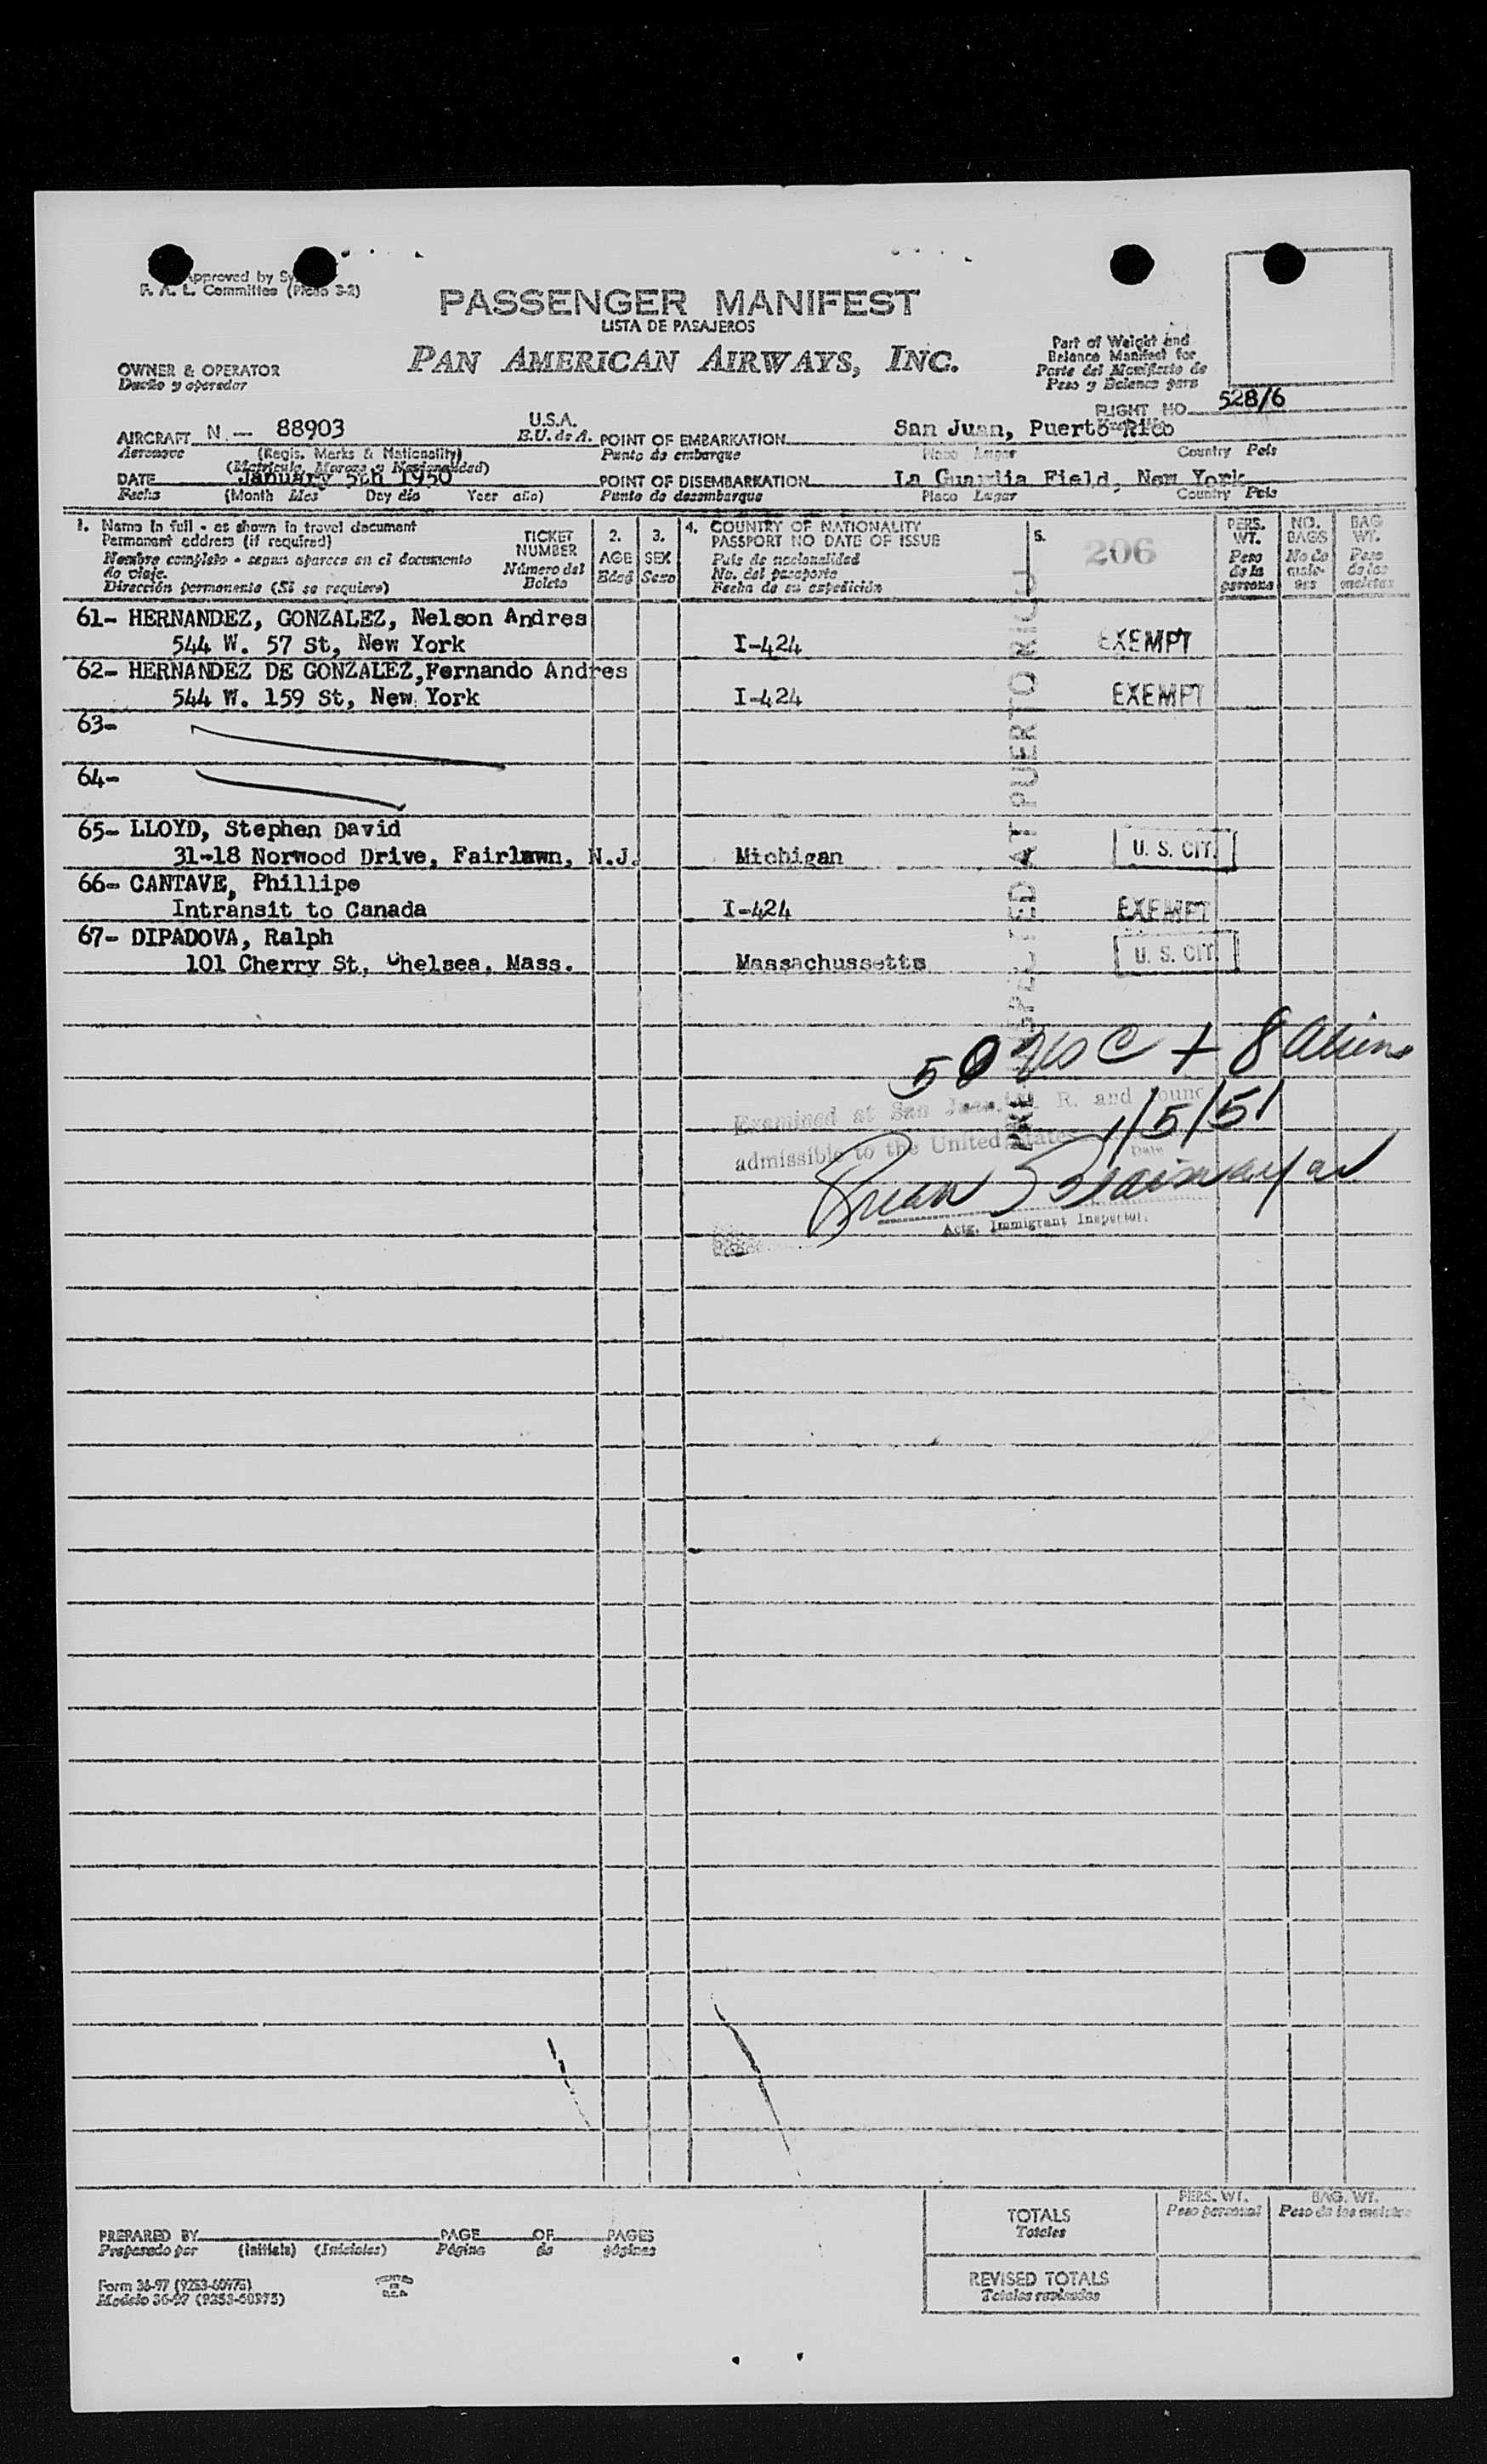 Approved by
F. A. L. Committee (Picao 3-2)
PASSENGER MANIFEST
LISTA DE PASAJEROS
PAN AMERICAN AIRWAYS, INC.
Part of Weight and
Balance Manifest for
Parte del Manifiesto de
Peso y Balance para
OWNER & OPERATOR
Dueño y operador
FLIGHT NO. 528/6
AIRCRAFT N - 88903 U.S.A. POINT OF EMBARKATION San Juan, Puerto Rico
Aeronave (Regis. Marks & Nationality) E.U. de A. Punto de embarque Place Lugar Country País
(Matrícula, Marcas y Nacionalidad)
DATE January 5th 1950 POINT OF DISEMBARKATION La Guardia Field, New York
Fecha (Month Mes Day día Year año) Punto de desembarque Place Lugar Country País
1. Name in full - as shown in travel document
Permanent address (if required)
Nombre completo - segun aparece en el documento
de viaje.
Dirección permanente (Si se requiere)
TICKET
NUMBER
Número del
Boleto
2.
AGE
Edad
3.
SEX
Sexo
4. COUNTRY OF NATIONALITY
PASSPORT NO DATE OF ISSUE
País de nacionalidad
No. del pasaporte
Fecha de su expedición
5.
206
PERS.
WT.
Peso
de la
persona
NO.
BAGS
No de
male-
tas
BAG
WT.
Peso
de las
maletas
61- HERNANDEZ, GONZALEZ, Nelson Andres
544 W. 57 St, New York I-424 EXEMPT
62- HERNANDEZ DE GONZALEZ,Fernando Andres
544 W. 159 St, New York I-424 EXEMPT
63-
64-
65- LLOYD, Stephen David
31-18 Norwood Drive, Fairlawn, N.J. Michigan U. S. CIT.
66- CANTAVE, Phillipe
Intransit to Canada I-424 EXEMPT
67- DIPADOVA, Ralph
101 Cherry St, Chelsea, Mass. Massachussetts U. S. CIT.
PRE-INSPECTED AT PUERTO RICO
50 USC + 8 Aliens
Examined at San Juan, P. R. and found
admissible to the United States 1/5/51
Date
Actg. Immigrant Inspector.
TOTALS
Totales
PERS. WT.
Peso personal
BAG. WT.
Peso de las maletas
REVISED TOTALS
Totales revisados
PREPARED BY PAGE OF PAGES
Preparado por (Initials) (Iniciales) Página de páginas
Form 36-97 (9253-60975)
Modelo 36-97 (9253-60975)
PRINTED
IN
U.S.A.